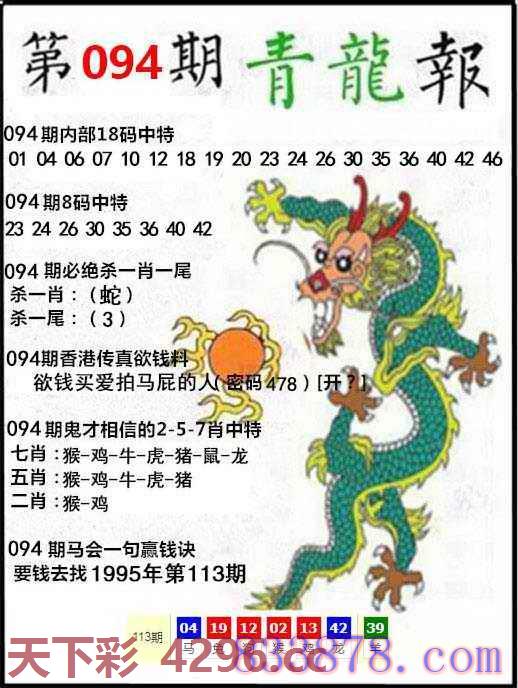 第094期 青龍報
094期内部18码中特
01 04 06 07 10 12 18 19 20 23 24 26 30 35 36 40 42 46
094期8码中特
23 24 26 30 35 36 40 42
094期必绝杀一肖一尾
杀一肖：（蛇）
杀一尾：（3）
094期香港传真欲钱料
欲钱买爱拍马屁的人(密码478)[开？]
094期鬼才相信的2-5-7肖中特
七肖：猴-鸡-牛-虎-猪-鼠-龙
五肖：猴-鸡-牛-虎-猪
二肖：猴-鸡
094期马会一句赢钱诀
要钱去找1995年第113期
113期 04 19 12 02 13 42 39
马 兔 狗 猴 鸡 龙 羊
天下彩 4296.cc
878.com